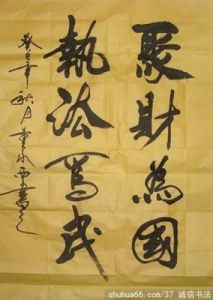 聚財為國
執法為民
癸巳年秋月
shuhua66.com/37 诚信书法